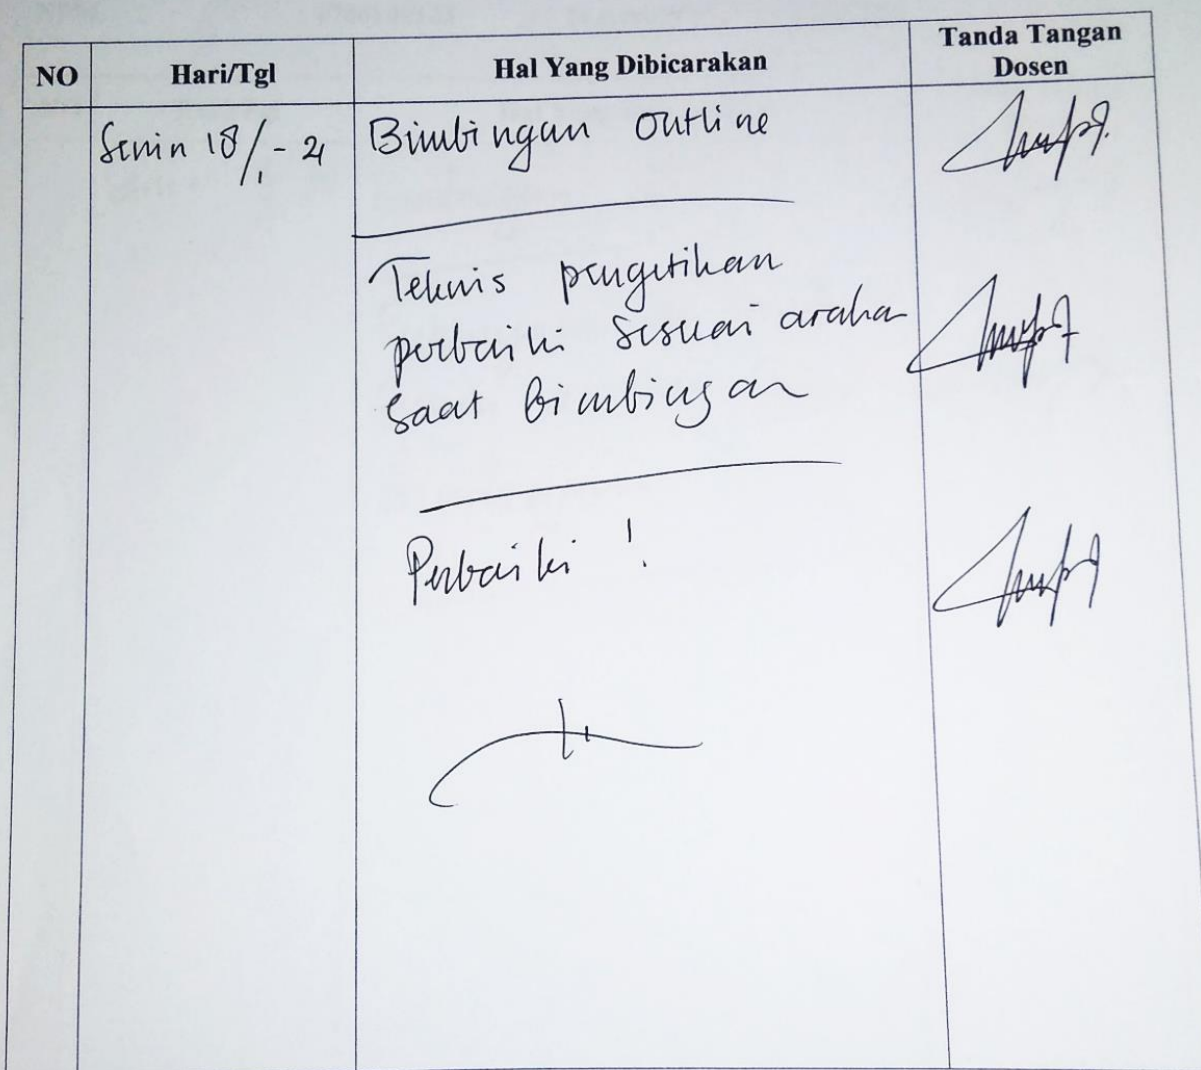 NO Hari/Tgl Hal Yang Dibicarakan Tanda Tangan Dosen
Senin 18/1 - 21 Bimbingan outline
Teknis pengetikan
perbaiki sesuai araha
saat bimbingan
Perbaiki !